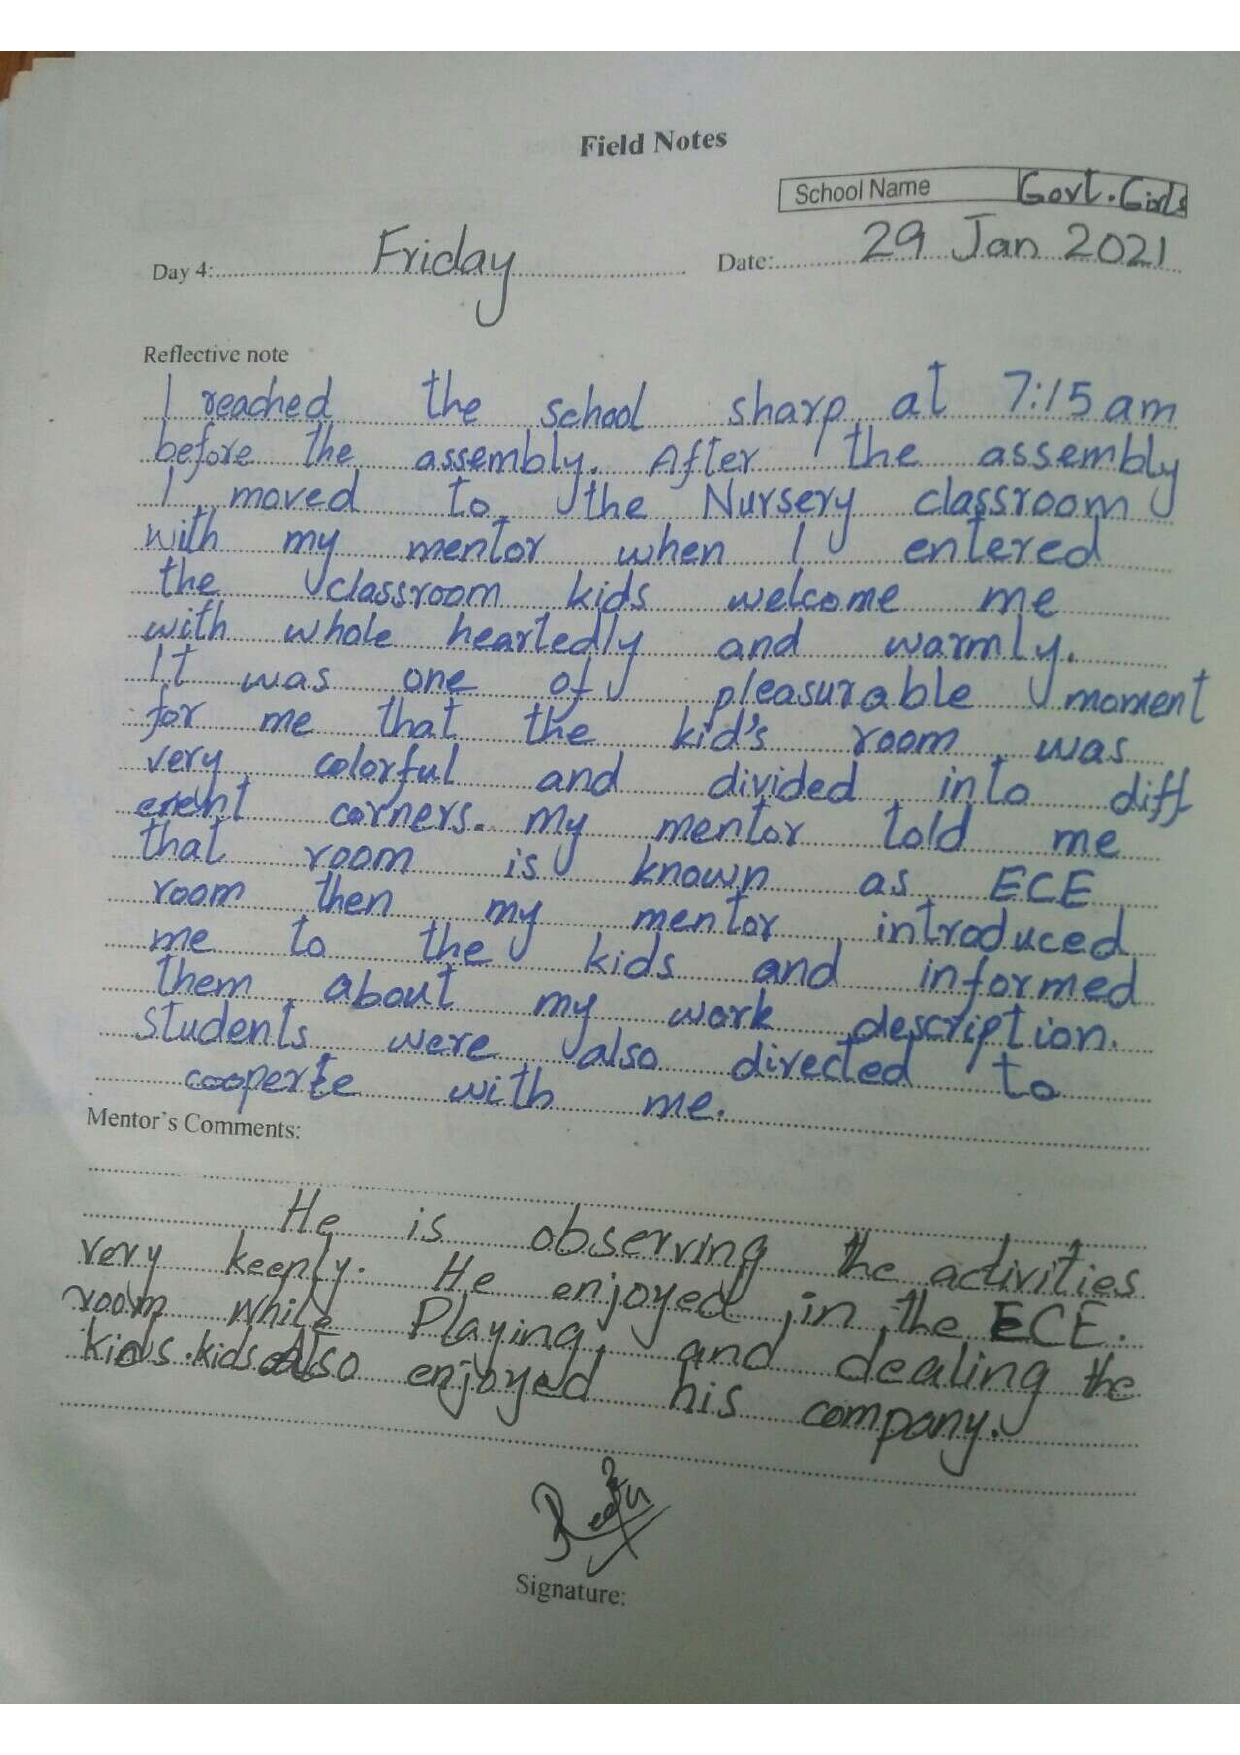 Field Notes
School Name Govt. Girls
Day 4: Friday Date: 29 Jan 2021
Reflective note
I reached the school sharp at 7:15 am
before the assembly. After the assembly
I moved to the Nursery classroom
with my mentor when I entered
the classroom kids welcome me
with whole heartedly and warmly.
It was one of pleasurable moment
for me that the kid's room was
very colorful and divided into diff
erent corners. my mentor told me
that room is known as ECE
room then my mentor introduced
me to the kids and informed
them about my work description.
students were also directed to
cooperte with me.
Mentor's Comments:
He is observing the activities
very keenly. He enjoyed in the ECE.
room while Playing and dealing the
kids. kids Also enjoyed his company.
Signature: